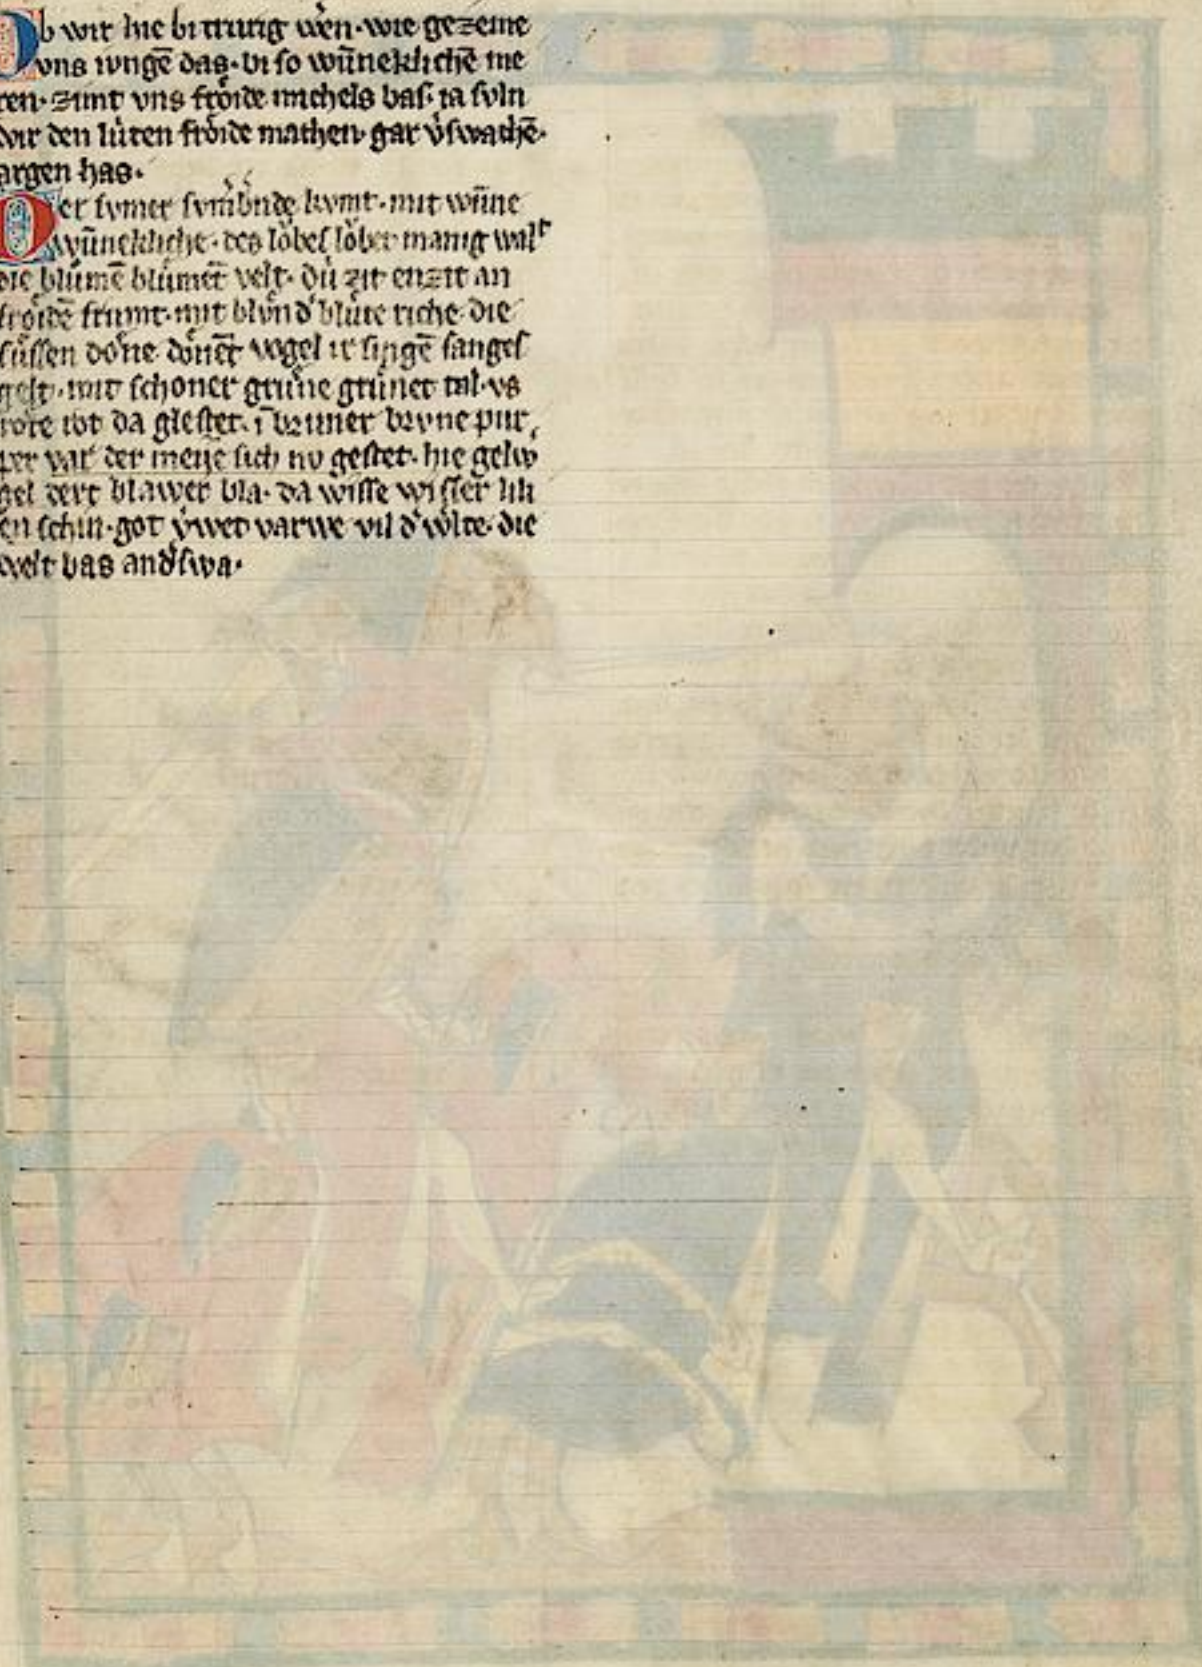 Ob wir hie bi trurig wen· wie gezeme
vns iungē das· bi so wūneklichē me
ren· zimt vns frôide michels bas· ia suln
wir den lúten frôide machen· gar vswachē·
argen has·
Der sumer kvmt· mit wūne
wūnekliche· des manig walt
die blůmē blůmet velt· dú zit enzit an
frôidē frumt· mit blůnd' blůte riche· die
sússen dône dônēt vogel ir singē sanges
gelt· mit schoner grúne grúnet tal· vs
rôte rot da glestet· ī bruner brvne pur
per var der meije sich nv gestet· hie gelw
gel dort blawer bla· da wisse wisser lili
en schin· got varwe vil d' welte· die
welt bas and'swa·